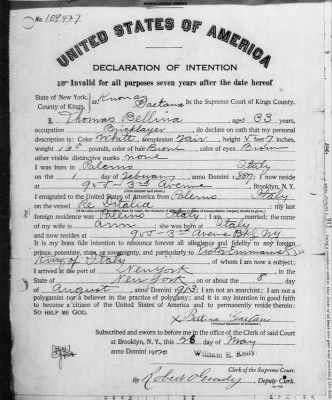 No. 109427
UNITED STATES OF AMERICA
DECLARATION OF INTENTION
Invalid for all purposes seven years after the date hereof
State of New York,
County of Kings, ss: Known as Gaetano In the Supreme Court of Kings County.
I, Thomas Bellina, aged 33 years,
occupation Bricklayer, do declare on oath that my personal
description is: Color White, complexion Fair, height 5 feet 7 inches,
weight pounds, color of hair Brown, color of eyes Brown
other visible distinctive marks none
I was born in Palermo Italy
on the 1 day of February, anno Domini 1887; I now reside
at 905 - 3rd Avenue Brooklyn, N. Y.
I emigrated to the United States of America from Palermo Italy
on the vessel Re D'Italia; my last
foreign residence was Palermo Italy. I am married; the name
of my wife is Anna; she was born at Italy
and now resides at 905 - 3rd Ave Bklyn NY
It is my bona fide intention to renounce forever all allegiance and fidelity to any foreign
prince, potentate, state, or sovereignty, and particularly to Victor Emmanuel III
King of Italy, of whom I am now a subject;
I arrived at the port of New York, in the
State of New York, on or about the 8 day
of August, anno Domini 1903; I am not an anarchist; I am not a
polygamist nor a believer in the practice of polygamy; and it is my intention in good faith
to become a citizen of the United States of America and to permanently reside therein:
SO HELP ME GOD.
x Bellina Gaetano
Subscribed and sworn to before me in the office of the Clerk of said Court
at Brooklyn, N. Y., this 28 day of May
anno Domini 1920
[SEAL]
William E. Kelly
Clerk of the Supreme Court.
By Robert O'Grady, Deputy Clerk.